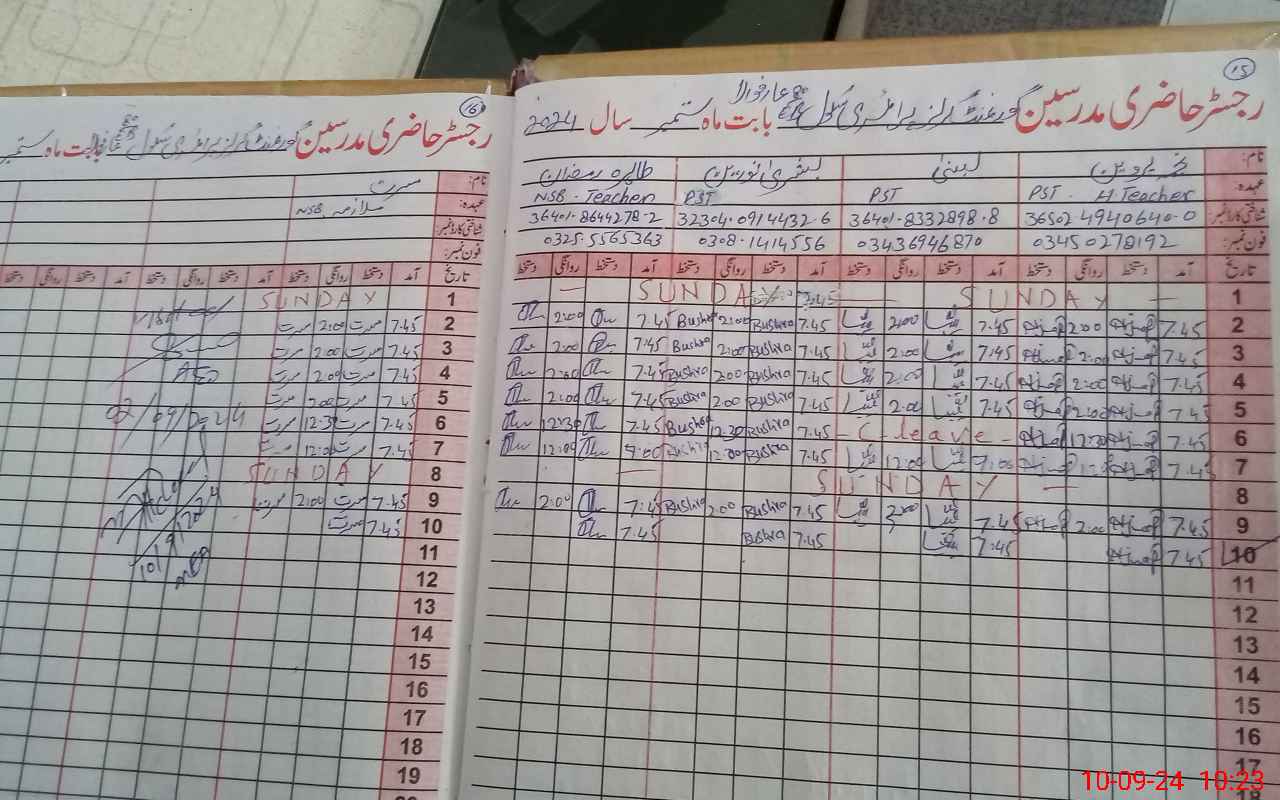 15
رجسٹر حاضری مدرسین گورنمنٹ گرلز پرائمری سکول عارفوالا بابت ماہ ستمبر سال 2024
نام: لبنیٰ بشریٰ نورین طاہرہ رمضان
عہدہ: PST . H Teacher PST PST NSB - Teacher
شناختی کارڈ نمبر: 36502-4940640-0 36401-8332898-8 32304-0914432-6 36401-8644278-2
فون نمبر: 03450278192 03436946870 0308-1414556 0325-5565363
تاریخ آمد دستخط روانگی دستخط آمد دستخط روانگی دستخط آمد دستخط روانگی دستخط آمد دستخط روانگی دستخط
1 SUNDAY — SUNDAY —
2 7.45 2:00 7.45 2:00 7.45 Bushra 2:00 Bushra 7.45 2:00
3 7.45 2:00 7.45 2:00 7.45 Bushra 2:00 Bushra 7.45 2:00
4 7.45 2:00 7.45 2:00 7.45 Bushra 2:00 Bushra 7.45 2:00
5 7.45 2:00 7.45 2:00 7.45 Bushra 2:00 Bushra 7.45 2:00
6 7.45 12:30 - C leave - 7.45 Bushra 12:30 Bushra 7.45 12:30
7 7.45 9:00 12:00 7.45 Bushra 12:00 Bushra 9:00 12:00
8 — SUNDAY —
9 7.45 2:00 7.45 2:00 7.45 Bushra 2:00 Bushra 7:45 2:00
10 7.45 7:45 7.45 Bushra 7.45
11
12
13
14
15
16
17
18
16
رجسٹر حاضری مدرسین گورنمنٹ گرلز پرائمری سکول بابت ماہ ستمبر
نام: مسرت
عہدہ: ملازمہ NSB
شناختی کارڈ نمبر:
فون نمبر:
تاریخ آمد دستخط روانگی دستخط آمد دستخط روانگی دستخط آمد دستخط روانگی دستخط
1 SUNDAY
2 7.45 مسرت 2:00 مسرت
3 7.45 مسرت 2:00 مسرت
4 7.45 مسرت 2:00 مسرت
5 7.45 مسرت 2:00 مسرت
6 7.45 مسرت 12:30 مسرت
7 7.45 مسرت 12:00 مسرت
8 SUNDAY
9 7.45 مسرت 2:00 مسرت
10 7.45 مسرت
11
12
13
14
15
16
17
18
19
Visited
AEO
02/09/2024
10-09-24 10:23